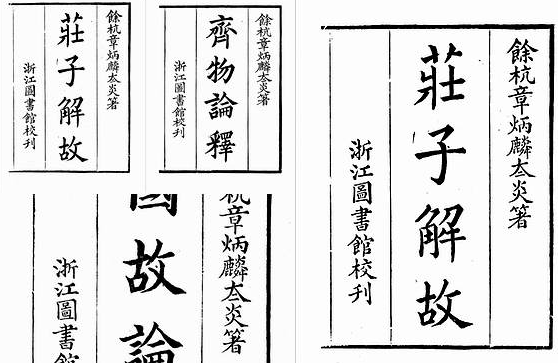 餘杭章炳麟太炎著
莊子解故
浙江圖書館校刊
餘杭章炳麟太炎著
齊物論釋
浙江圖書館校刊
杭章炳麟太炎著
國故論
浙江圖書館
餘杭章炳麟太炎著
莊子解故
浙江圖書館校刊